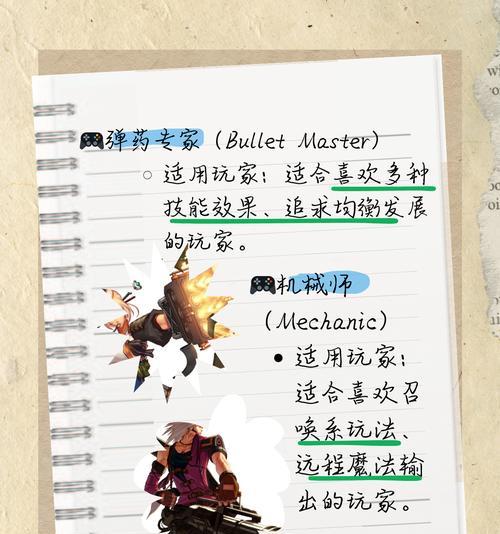 弹药专家（Bullet Master）
适用玩家：适合喜欢多种
技能效果、追求均衡发展
的玩家。
机械师
（Mechanic）
适用玩家：
适合喜欢召
唤系玩法、
远程魔法输
出的玩家。